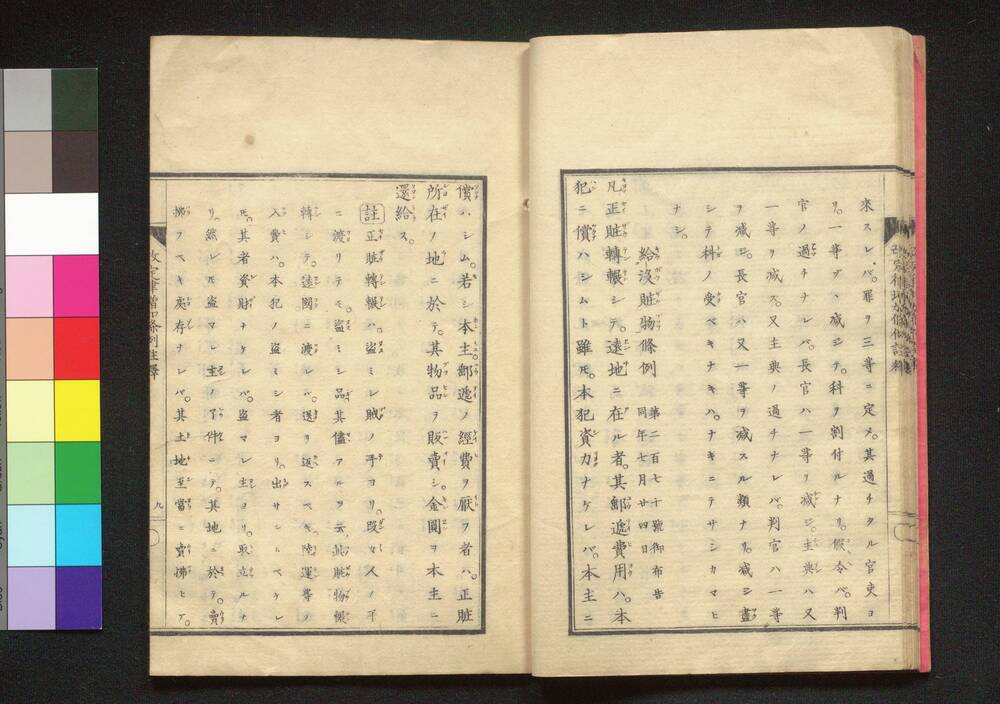 來スレバ。罪ヲ三等ニ定メ。其過チタル官吏ヨ
リ。一等ヅヽ減ジテ。科ヲ割付ルナリ。假令バ。判
官ノ過チナレバ。長官ハ一等ヲ減ジ。主典ハ又
一等ヲ減ス。又主典ノ過チナレバ。判官ハ一等
ヲ減ジ。長官ハ又一等ヲ減スル類ナリ。減シ盡
シテ科ノ受ベキナキハ。ナキニテサシカマヒ
ナシ。
給沒贓物條例
第二百七十號御布告
同年七月廿四日
凡正贓轉輾シテ。遠地ニ在ル者。其郵遞費用ハ。本
犯ニ償ハシムト雖モ。本犯資力ナケレバ。本主ニ
償ハシム。若シ本主。郵遞ノ經費ヲ厭フ者ハ。正贓
所在ノ地ニ於テ。其物品ヲ販賣シ。金圓ヲ本主ニ
還給ス。
註 正贓轉輾ハ。盜ミシ賊ノ手ヨリ。段々人ノ手
ニ渡リテモ。盜ミシ品其儘アルヲ云。此贓物輾
轉シテ。遠國ニ渡レバ。送リ返スベキ。陸運等ノ
入費ハ。本犯ノ盜ミシ者ヨリ。出サシムベケレ
モ。其者資財ナケレバ。盜マレシ主ヨリ。取立ルナ
リ。然レモ盜マレシ主ノ了件ニテ。其地ニ於テ。賣
拂フベキ戻存ナレバ。其土地至當ニ賣拂ヒテ。
改定律增加條例註釋
九